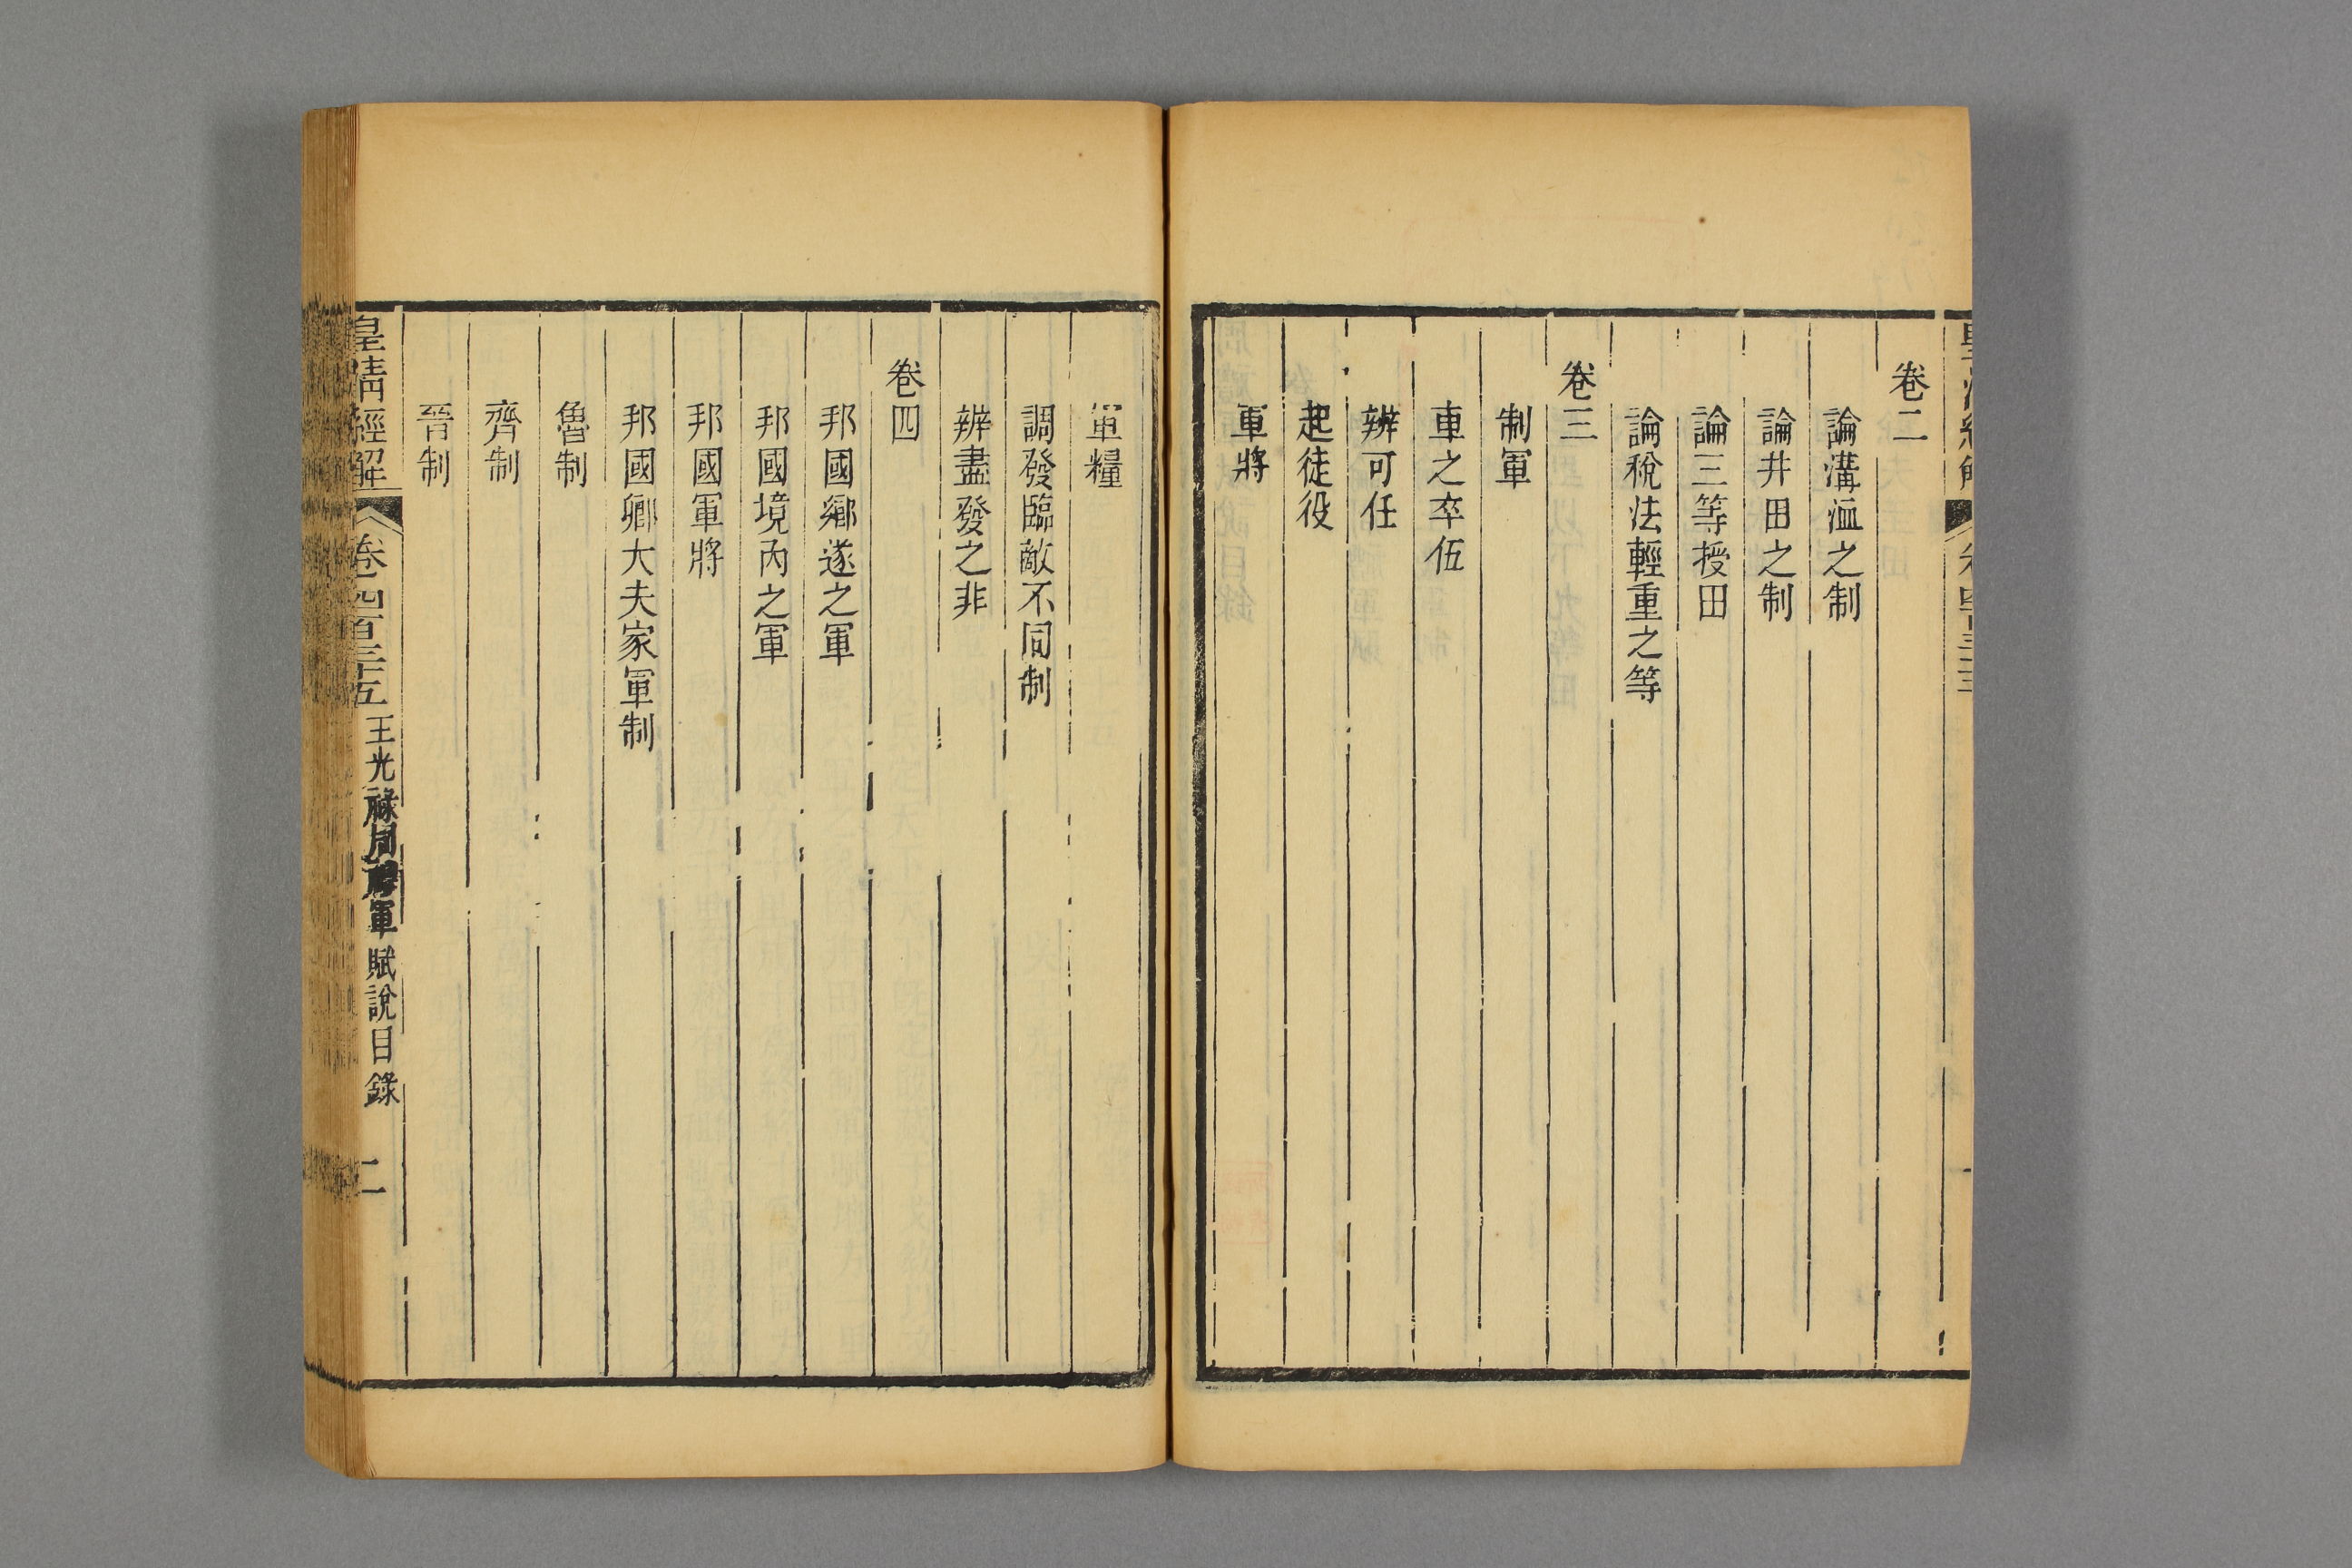 卷二
論溝洫之制
論井田之制
論三等授田
論稅法輕重之等
卷三
制軍
車之卒伍
辨可任
起徒役
軍將
軍糧
調發臨敵不同制
辨盡發之非
卷四
邦國鄉遂之軍
邦國境內之軍
邦國軍將
邦國卿大夫家軍制
魯制
齊制
晉制
皇清經解 卷四百三十五 王光祿周禮軍賦說目錄 二